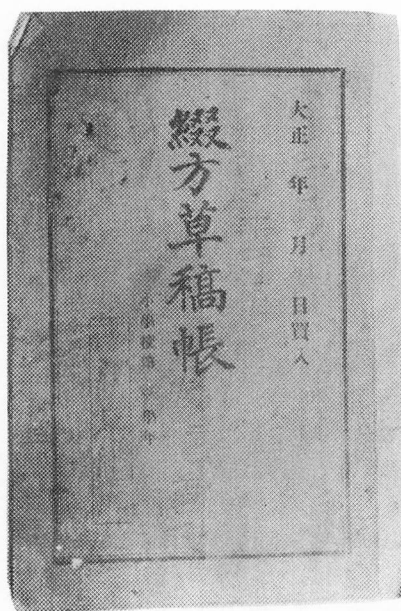 大正 年 月 日買入
綴方草稿帳
小學校第 學年